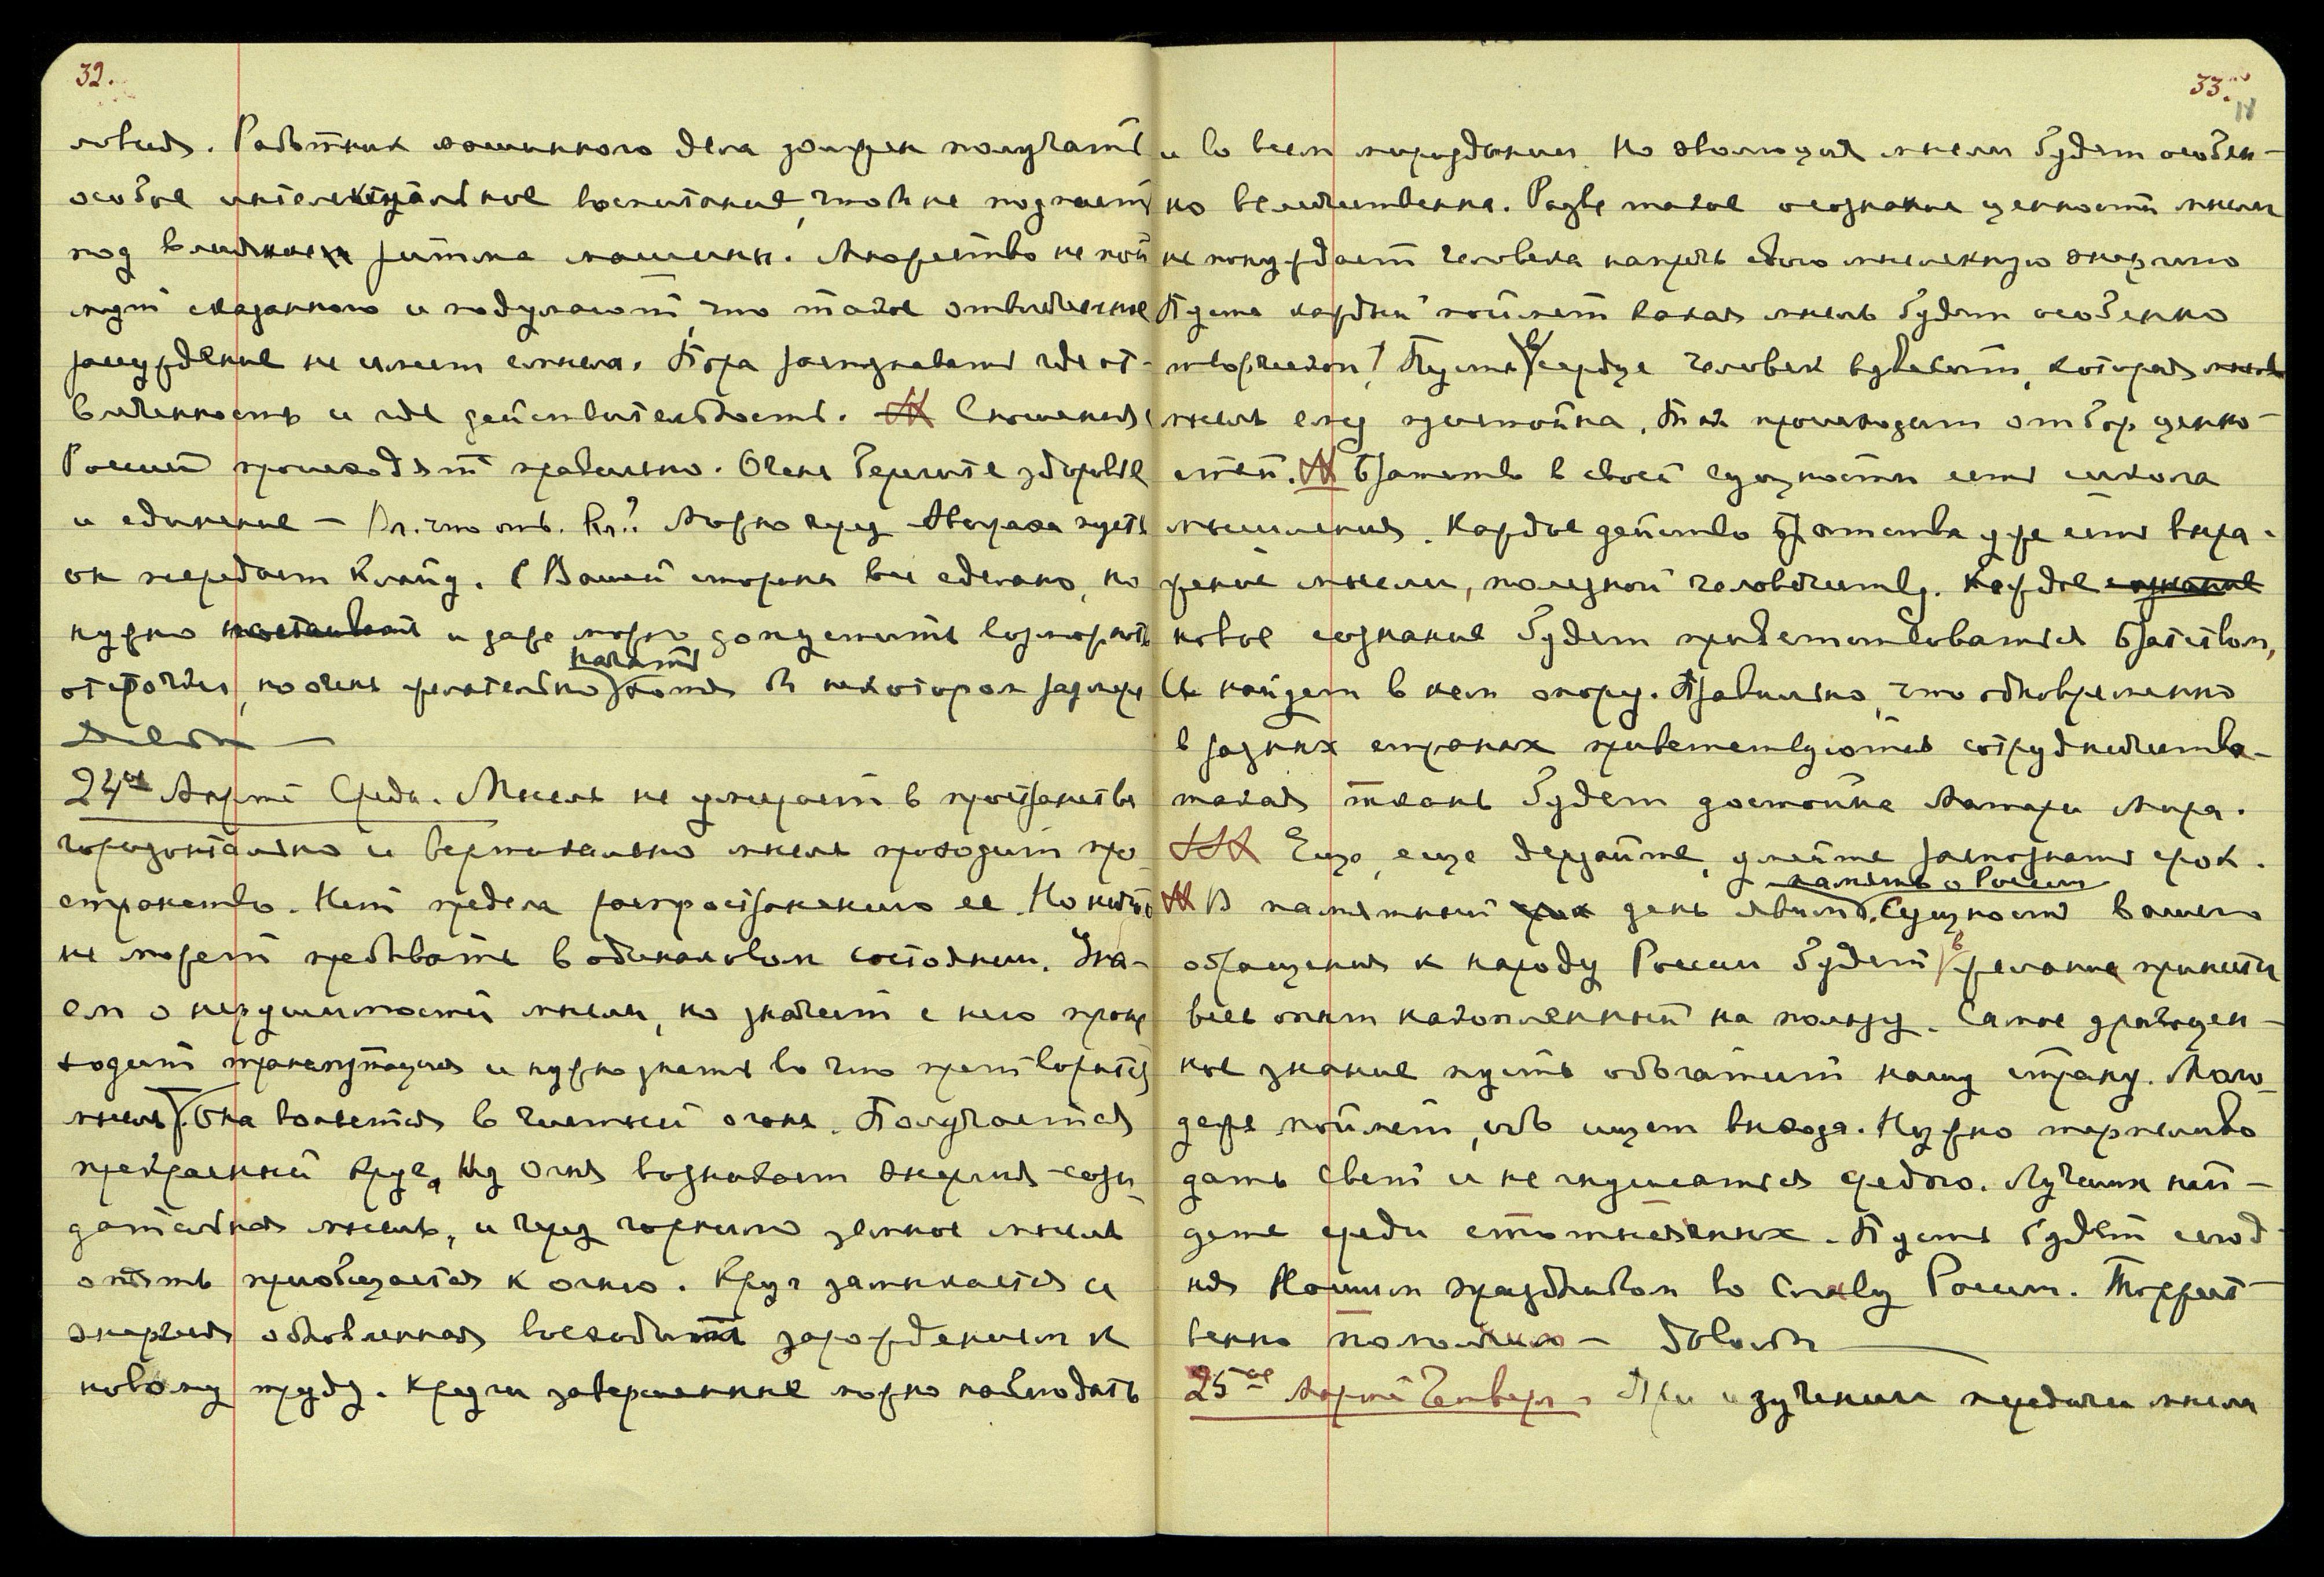 32.
ловия. Работник машинного дела должен получать
особое интелектуальное воспитание, чтоб не подпасть
под влияние ритма машины. Множество не пой
мут сказанного и подумают, что такое отвлеченное
рассуждение не имеет смысла. Пора распознавать где от-
влеченность и где действительность. Сношения с
Россией происходят правильно. Очень берегите здоровье
и единение — Вл. что отв. Кл.? Можно через Авираха пусть
он передает Клайд. С Вашей стороны все сделано, но
нужно и даже можно допустить возможность
отсрочки, но очень желательно начать хотя б в некотором размере
Довольно —
24ое Март Среда. Мысль не умирает в пространстве
горизонтально и вертикально мысль проходит про
странство. Нет предела распространению ее. Но ничто
не может пребывать в одинаковом состоянии. Зна-
ем о нерушимости мысли, но значит с нею проис
ходит трансмутация и нужно знать во что претворится
мысль. Она вольется в чистый огонь. Получается
прекрасный круг, Из Огня возникает энергия — сози
дательная мысль, и через горнило земное мысль
опять приобщается к огню. Круг замыкается и
энергия обновленная восходит зарождением к
новому труду. Круги завершенные можно наблюдать
33.
18
и во всем мироздании но эволюция мысли будет особен-
но величественна. Разве такое осознание ценности мысли
не понуждает человека напрячь свою мысленную энергию
Пусть каждый поймет какая мысль будет особенно
творческой! Пусть в сердце человек взвесит, которая мысль
мысль ему достойна. Так происходит отбор ценно-
стей. Братство в своей сущности есть школа
мышления. Каждое действо Братства уже есть выра-
жение мысли, полезной человечеству. Каждое сознание
новое сознание будет приветствоваться Братством,
И найдет в нем опору. Правильно, что одновременно
в разных странах приветствуются сотрудничества —
такая ткань будет достойна Матери Мира.
Еще, еще дерзайте, умейте распознать срок.
В памятный день явим память о России. Сущность вашего
обращения к народу России будет в желание принести
весь опыт накопленный на пользу. Самое драгоцен-
ное знание пусть обогатит нашу страну. Моло
дежь поймет, ибо ищет выхода. Нужно терпеливо
дать Свет и не гнушаться средою. Лучших най-
дете среди стомысленных. Пусть будет сегод
ня Нашим праздником во Славу России. Торжест-
венно помолчим — Довольно —
25ое Март Четверг. При изучении передачи мысли